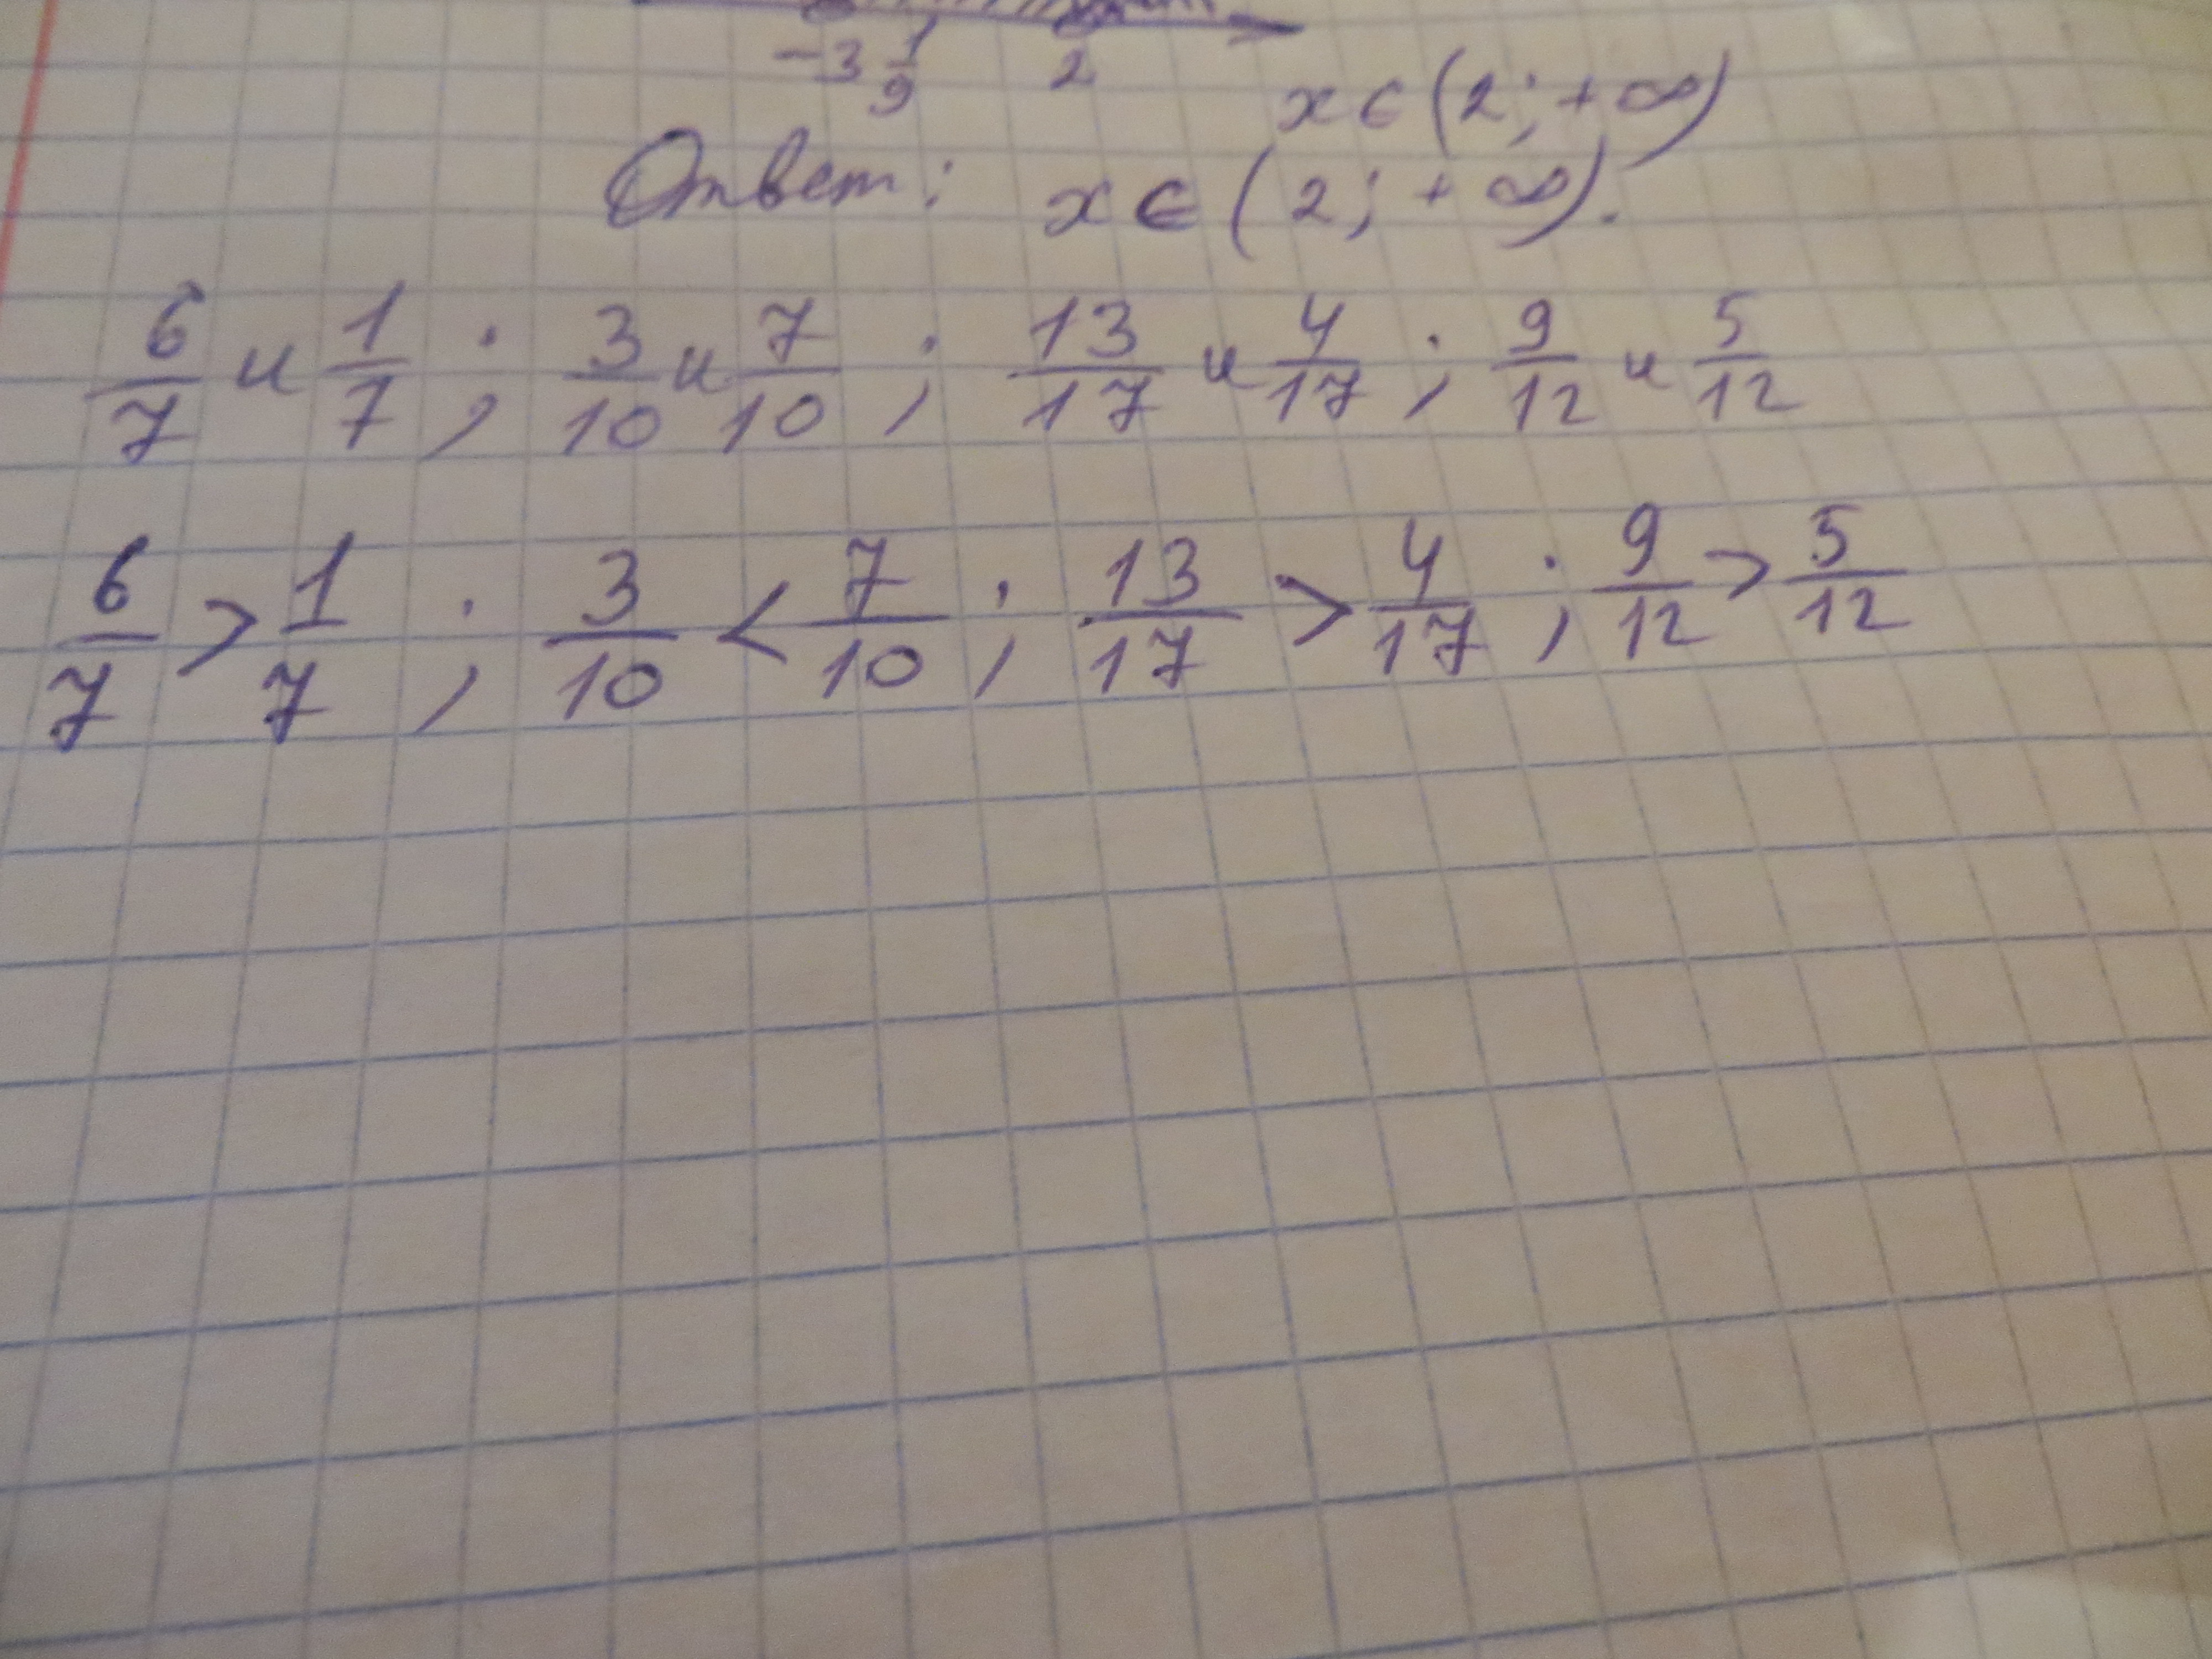 -3 1/9 2
x ∈ (2; +∞)
Ответ: x ∈ (2; +∞).
6/7 и 1/7 ; 3/10 и 7/10 ; 13/17 и 4/17 ; 9/12 и 5/12
6/7 > 1/7 ; 3/10 < 7/10 ; 13/17 > 4/17 ; 9/12 > 5/12